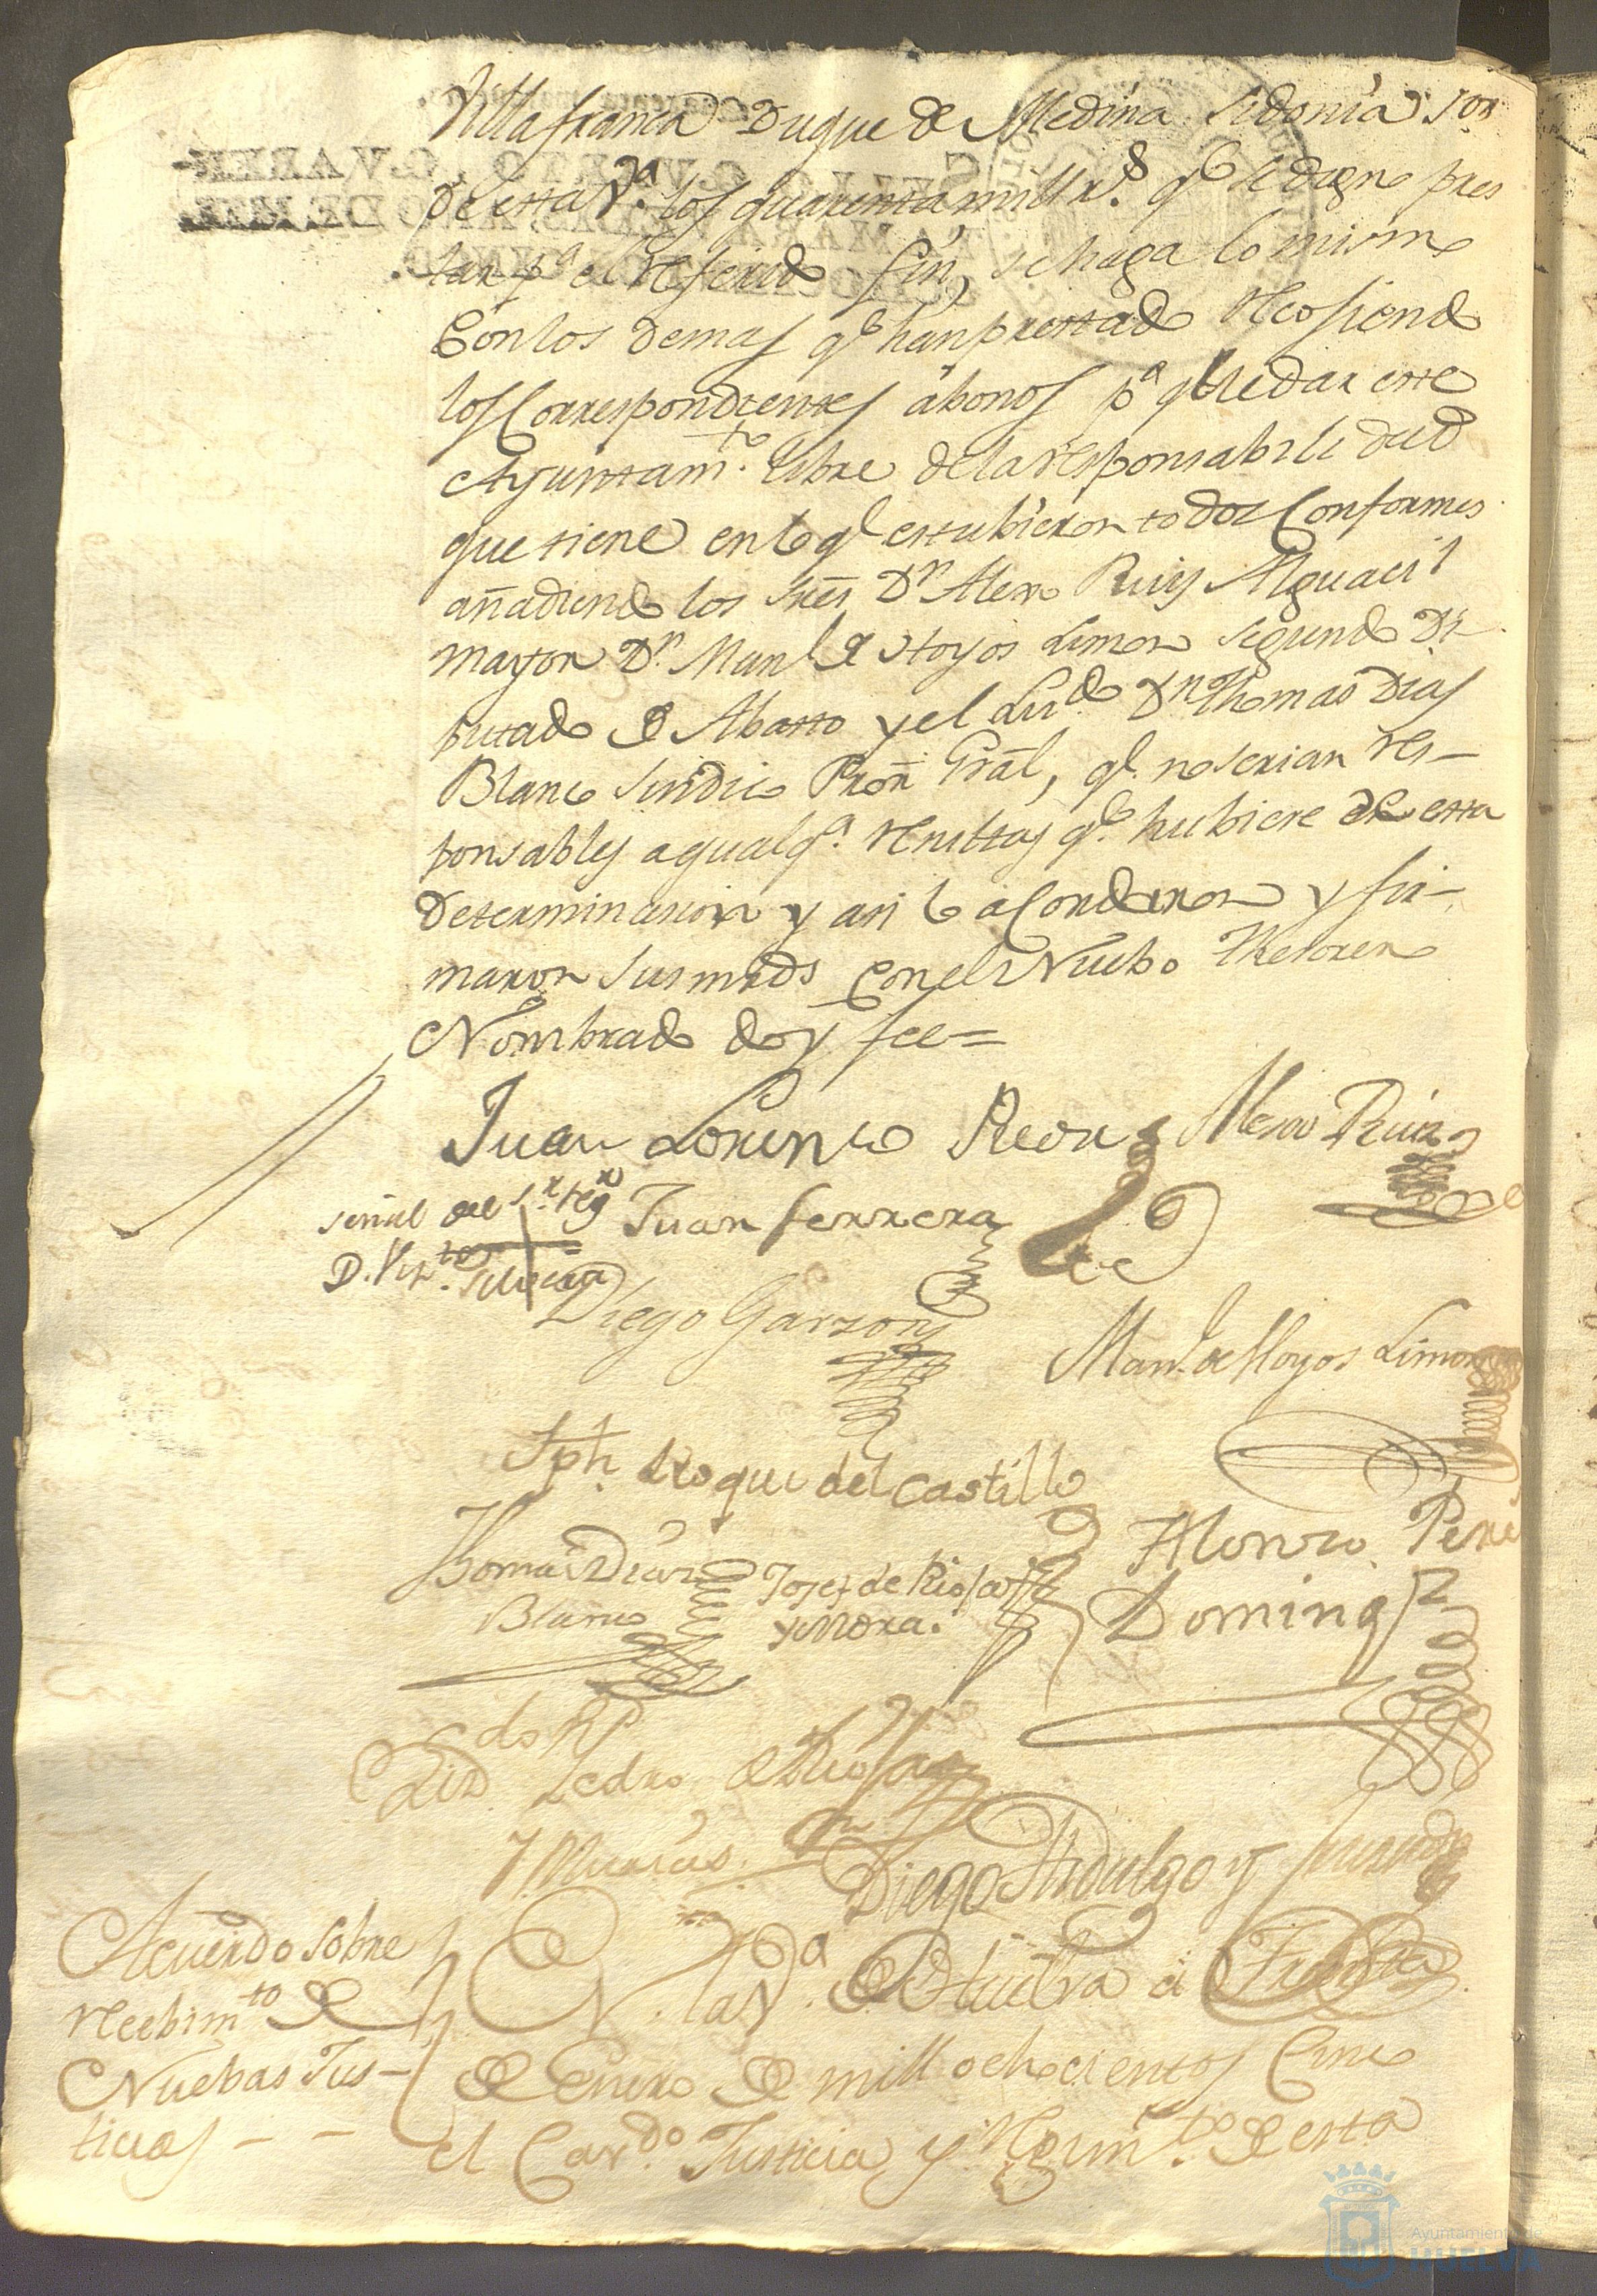 Villafranca Duque de Medina Sidonia Sor
de esta Va. los quarenta mill rs. qe. se digno pres
tar pa. el referido fin, se haga lo mismo
con los demas qe. han prestado recosiendo
los correspondientes abonos pa. quedar este
Ayuntamto. libre de la responsabilidad
que tiene en lo ql. estubieron todos conformes
añadiendo los Sres Dn. Alexo Ruiz Alguacil
mayor Dn. Manl. de Hoyos Limon segundo Di-
putado de Abasto y el Licdo. Dn. Thomas Dias
Blanco Sindico Pror. Gral, qe. no serian res-
ponsables a qualqa. resultas qe. hubiere de esta
determinasion y asi lo acordaron y fir-
maron sus mrds con el Nuebo Thesorero
Nombrado doy fee=
Juan Lorenzo Redr. Alexo Ruiz
señal del Sr. regr
D. Vizte. Silveira
Juan Ferrera
Diego Garzon
Manl. de Hoyos Limon
Jph. Roque del Castillo
Alonzo Perez
Domingz
Thomas Diaz
Blanco
Josef de Rioja
y Mora.
Lizdo. Dn Pedro de Rioja
Diego Hidalgo y
Acuerdo sobre
recebimto de
Nuebas Jus-
ticias - -
En. la Va. de Huelva a Treinta
de Enero de mill ochocientos Cinco
el Cavdo. Justicia, y Regimto. de esta
Ayuntamiento de
HUELVA